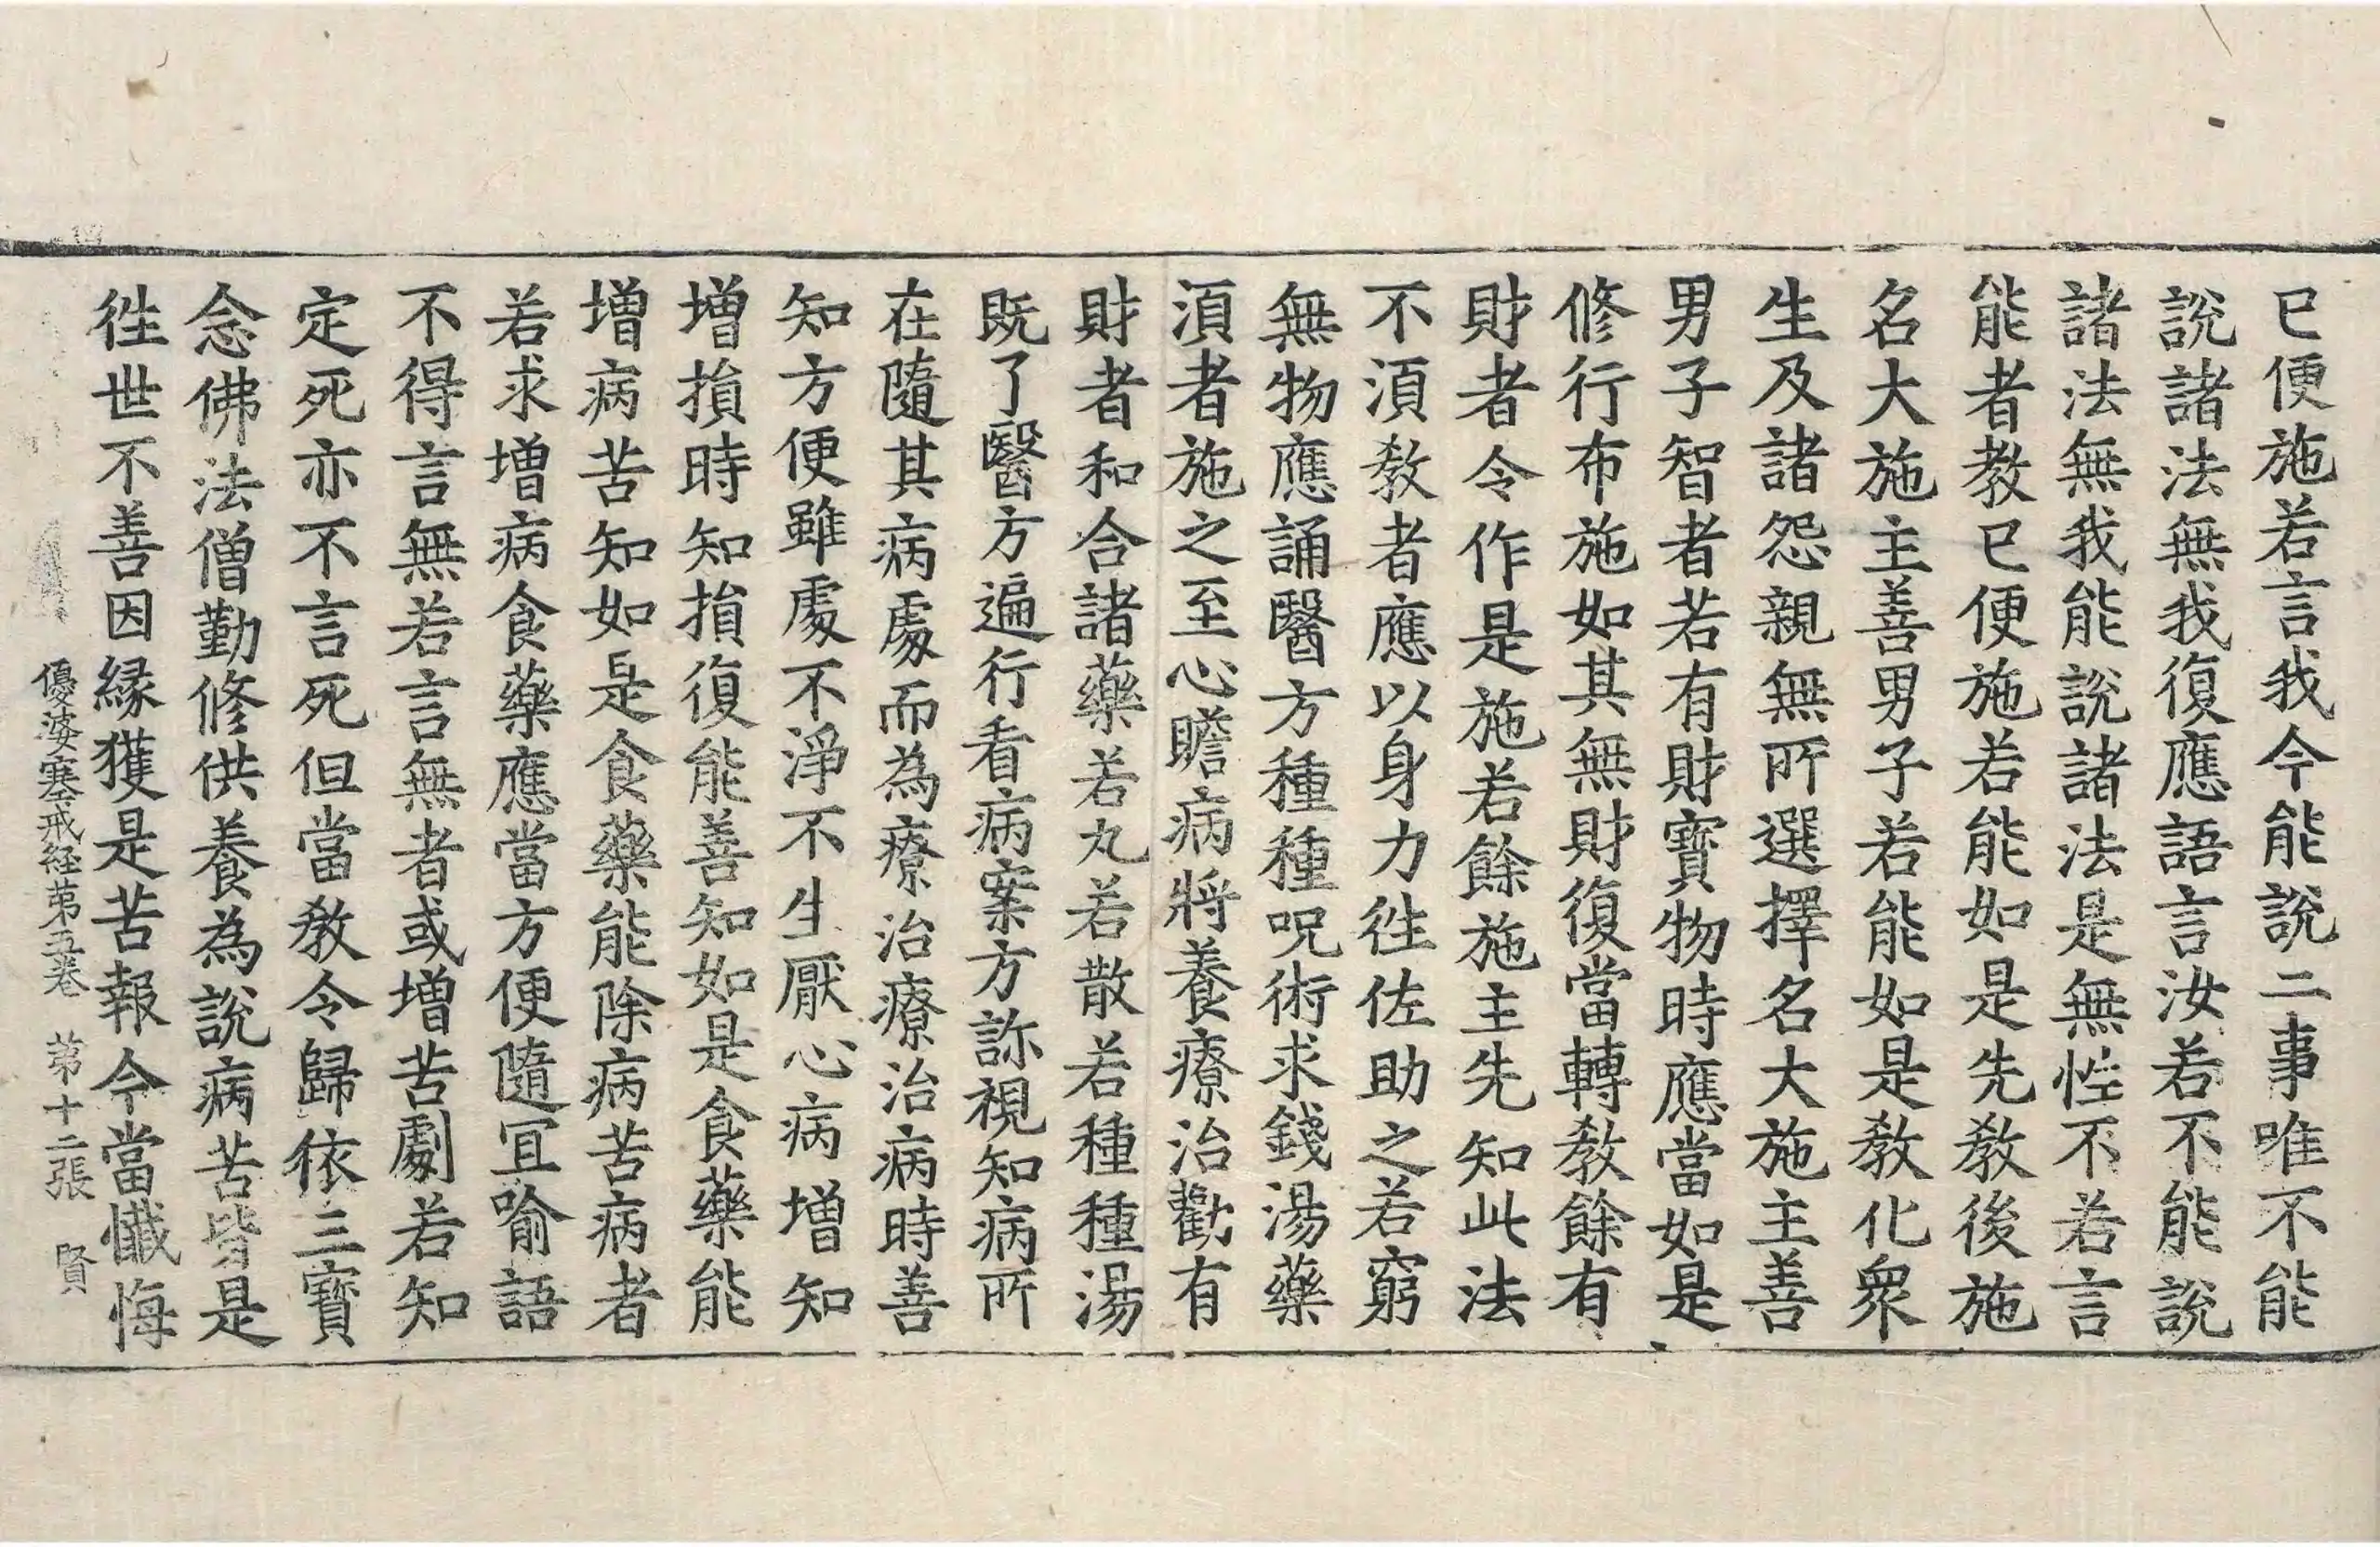 已便施若言我今能說二事唯不能
說諸法無我復應語言汝若不能說
諸法無我能說諸法是無性不若言
能者教已便施若能如是先教後施
名大施主善男子若能如是教化眾
生及諸怨親無所選擇名大施主善
男子智者若有財寶物時應當如是
修行布施如其無財復當轉教餘有
財者令作是施若餘施主先知此法
不須教者應以身力往佐助之若窮
無物應誦醫方種種呪術求錢湯藥
湏者施之至心瞻病將養療治勸有
財者和合諸藥若丸若散若種種湯
既了醫方遍行看病案方診視知病所
在隨其病處而為療治療治病時善
知方便雖處不淨不生厭心病增知
增損時知損復能善知如是食藥能
增病苦知如是食藥能除病苦病者
若求增病食藥應當方便隨宜喻語
不得言無若言無者或增苦劇若知
定死亦不言死但當教令歸依三寶
念佛法僧勤修供養為說病苦皆是
往世不善因緣獲是苦報今當懺悔
優婆塞戒経第五卷　第十二張　賢